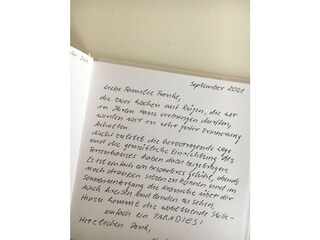 September 2021
Liebe Familie Franke,
die zwei Wochen auf Rügen, die wir
in Ihrem Haus verbringen durften,
werden wir in sehr guter Erinnerung
behalten.
Nicht zuletzt die hervorragende Lage
und die gemütliche Einrichtung des
Ferienhauses haben dazu beigetragen.
Es ist einfach ein besonderes Gefühl, abends
noch draußen sitzen zu können und im
Sonnenuntergang die Kraniche über der
Wiek kreisen und landen zu sehen.
Hinzu kommt die wohltuende Stille -
einfach ein PARADIES!
Herzlichen Dank,